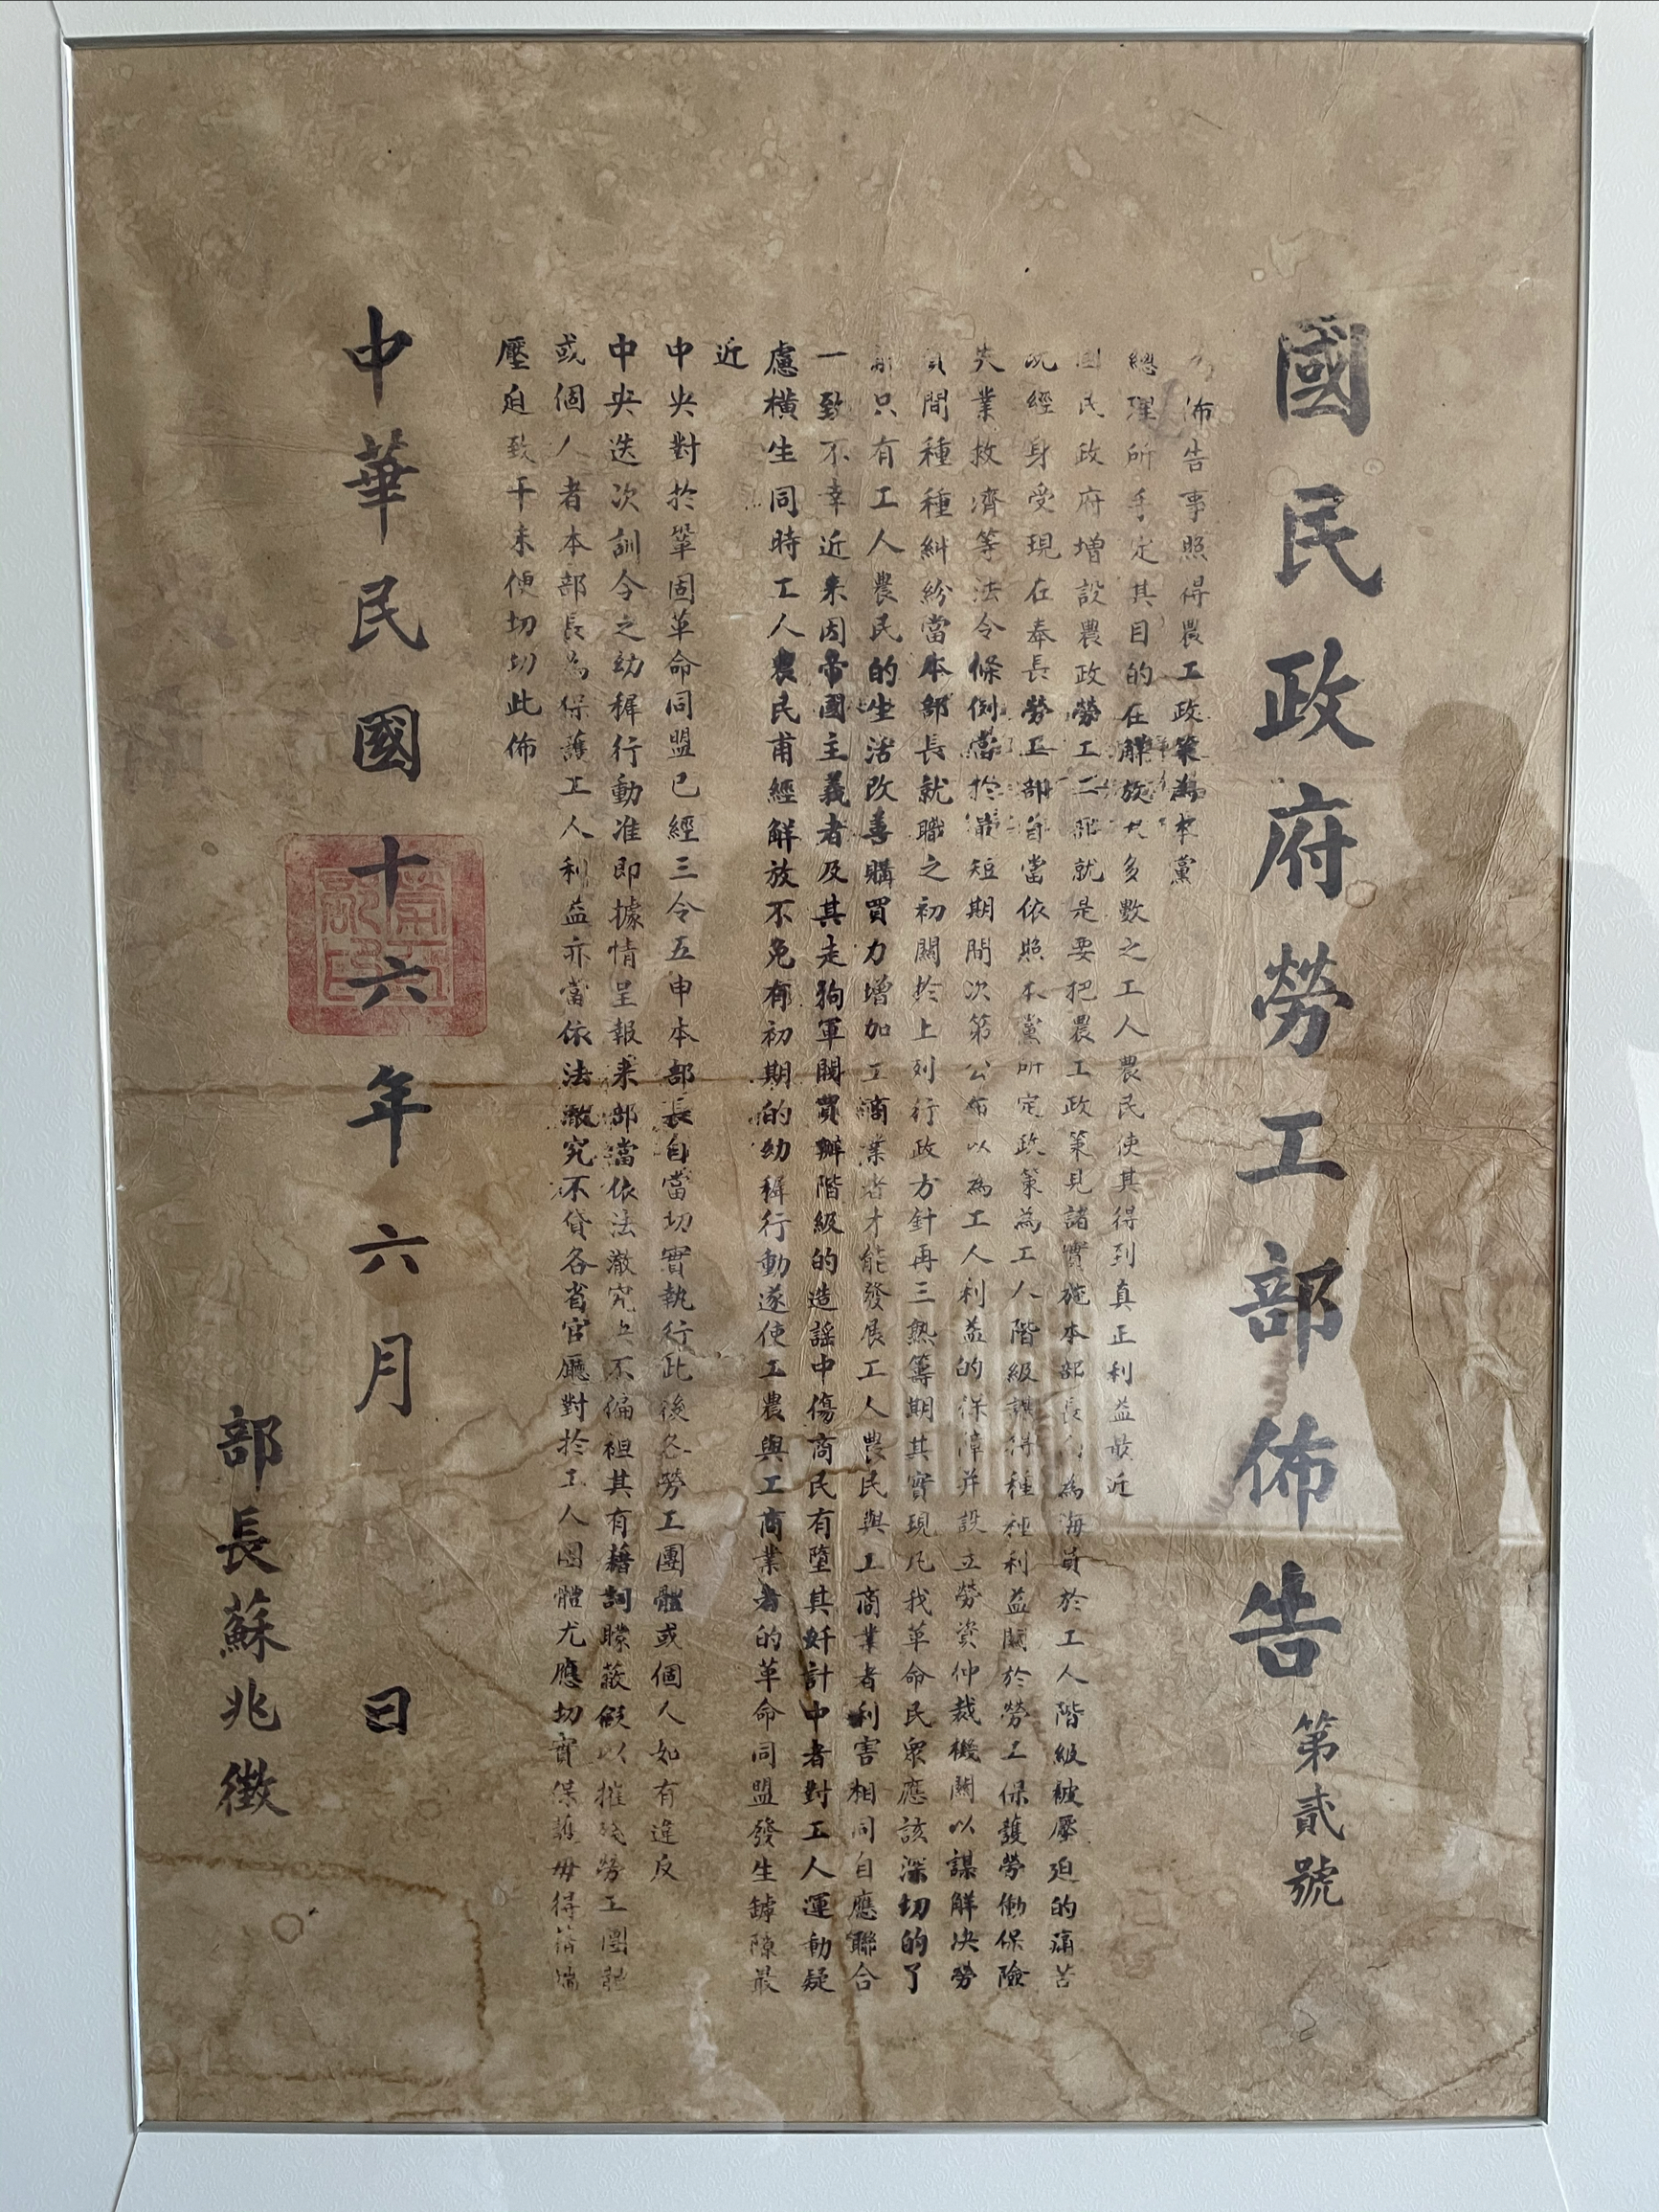 國民政府勞工部佈告第貳號
佈告事照得農工政策為本黨
總理所手定其目的在解放大多數之工人農民使其得到真正利益最近
國民政府增設農政勞工二部就是要把農工政策見諸實施本部長為海員於工人階級被壓迫的痛苦
既經身受現在奉長勞工部自當依照本黨所定政策為工人階級謀得種種利益關於勞工保護勞働保險
失業救濟等法令條例當於最短期間次第公布以為工人利益的保障并設立勞資仲裁機關以謀解決勞
資間種種糾紛當本部長就職之初關於上列行政方針再三熟籌期其實現凡我革命民眾應該深切的了
解只有工人農民的生活改善購買力增加工商業者才能發展工人農民與工商業者利害相同自應聯合
一致不幸近来因帝國主義者及其走狗軍閥買辦階級的造謠中傷商民有墮其奸計中者對工人運動疑
慮橫生同時工人農民甫經解放不免有初期的幼稺行動遂使工農與工商業者的革命同盟發生罅隙最
近
中央對於鞏固革命同盟已經三令五申本部長自當切實執行此後各勞工團體或個人如有違反
中央迭次訓令之幼稺行動准即據情呈報来部當依法澈究 不偏袒其有藉詞矇蔽假以摧殘勞工團體
或個人者本部長為保護工人利益亦當依法澈究不貸各省官廳對於工人團體尤應切實保護毋得藉端
壓迫致干未便切切此佈
中華民國十六年六月 日
部長蘇兆徵